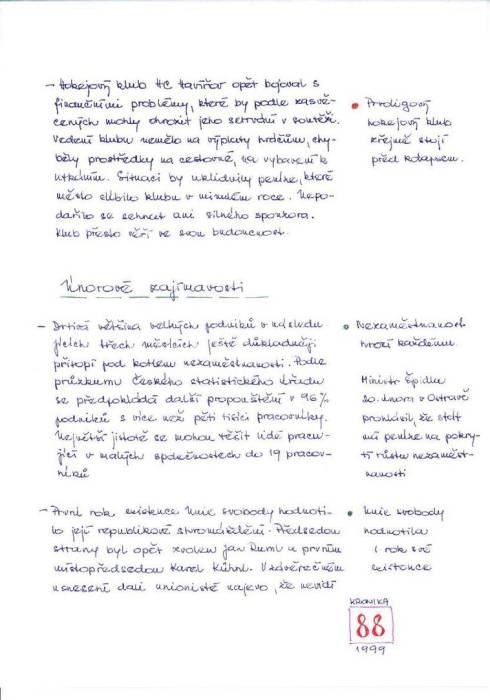 - Hokejový klub HC Havířov opět bojoval s
finančními problémy, které by podle zasvě-
cených mohly ohrozit jeho setrvání v soutěži.
Vedení klubu nemělo na výplaty hráčům, chy-
běly prostředky na cestovné, na vybavení k
utkáním. Situaci by uklidnily peníze, které
město slíbilo klubu v minulém roce. Nepo-
dařilo se sehnat ani silného sponzora.
Klub přesto věří ve svou budoucnost.
• Prvoligový
hokejový klub
zřejmě stojí
před kolapsem.
Únorové zajímavosti
- Drtivá většina velkých podniků v násle­du
jících třech měsících ještě důkladněji
přitopí pod kotlem nezaměstnanosti. Podle
průzkumu Českého statistického úřadu
se předpokládá další propouštění v 96%
podniků s více než pěti tisíci pracovníky.
Největší jistotě se mohou těšit lidé pracu-
jící v malých společnostech do 19 pracov-
níků
• Nezaměstnanost
hrozí každému.
Ministr Špidla
20. února v Ostravě
prohlásil, že stát
má peníze na pokry-
tí růstu nezaměst-
nanosti
- První rok existence Unie svobody hodnoti-
lo její republikové shromáždění. Předsedou
strany byl opět zvolen Jan Ruml a prvním
místopředsedou Karel Kühnl. V závěrečném
usnesení dali unionisté najevo, že nevidí
• Unie svobody
hodnotila
1 rok své
existence
KRONIKA
88
1999